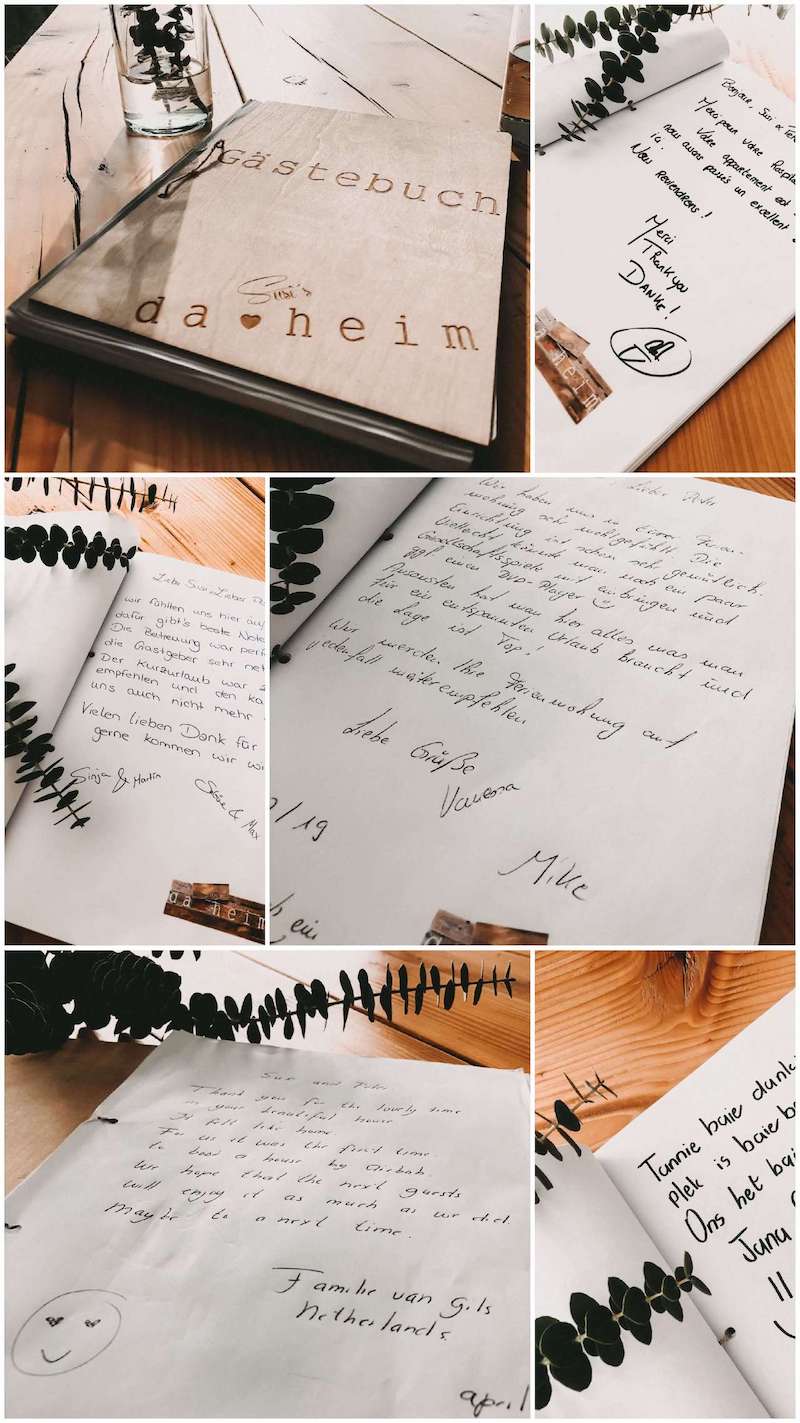 Gästebuch
Susi's
da heim
Bonjour, Susi &
Merci pour votre
Votre appartement est
nous avons passés un excellent
ici.
Nous reviendrons!
Merci
Thank you
DANKE!
da heim
Liebe Susi, Lieber
wir fühlten uns hier
dafür gibt's beste Note
Die Betreuung war
die Gastgeber sehr
Der Kurzurlaub war
empfehlen und den
uns auch nicht mehr
Vielen lieben Dank für
gerne kommen wir
Sinja & Martin
& Max
da heim
Lieber
Wir haben uns in Eurer Ferien-
wohnung sehr wohlgefühlt. Die
Einrichtung ist schon sehr gemütlich.
Vielleicht könnte man noch ein paar
Gesellschaftsspiele mit einbringen und
ggf einen DVD-Player
Ansonsten hat man hier alles was man
für ein entspannten Urlaub braucht und
die Lage ist Top!
Wir werden Ihre Ferienwohnung auf
jedenfall weiterempfehlen
Liebe Grüße
Vanessa
/19
Mike
Thank you for the lovely time
in your beautiful house
It felt like home
For us it was the first time
to book a house by Airbnb.
We hope that the next guests
will enjoy it as much as we did.
Maybe to a next time.
Familie van Gils
Netherlands
april
Tannie baie
plek is baie
Ons het
Jana